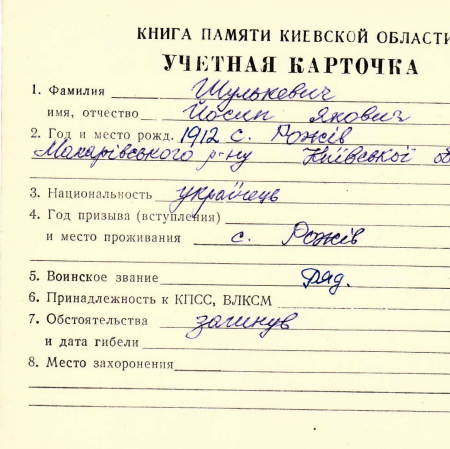 КНИГА ПАМЯТИ КИЕВСКОЙ ОБЛАСТИ
УЧЕТНАЯ КАРТОЧКА
1. Фамилия Шулькевич
имя, отчество Йосип Якович
2. Год и место рожд. 1912 с. Рожів
Макарівського р-ну Київської об
3. Национальность українець
4. Год призыва (вступления)
и место проживания с. Рожів
5. Воинское звание Ряд.
6. Принадлежность к КПСС, ВЛКСМ
7. Обстоятельства загинув
и дата гибели
8. Место захоронения